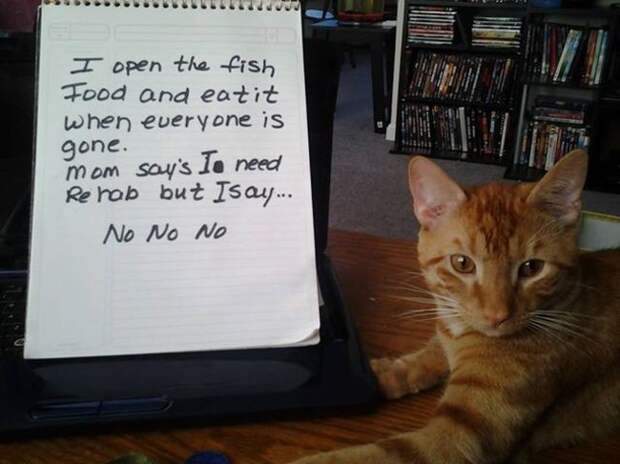 I open the fish
Food and eat it
when everyone is
gone.
mom say's I need
Rehab but I say...
No No No